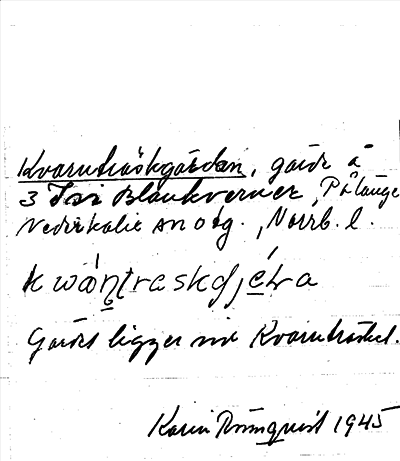 Kvarnträskgården, gård å
3 Svartblånkverner, Pålänge
Nederkalix sn o tg., Norrb. l.
kwɑ̀ṇtraskdjéɽa
Gården ligger vid Kvarnträsket.
Karin Rönnquist 1945